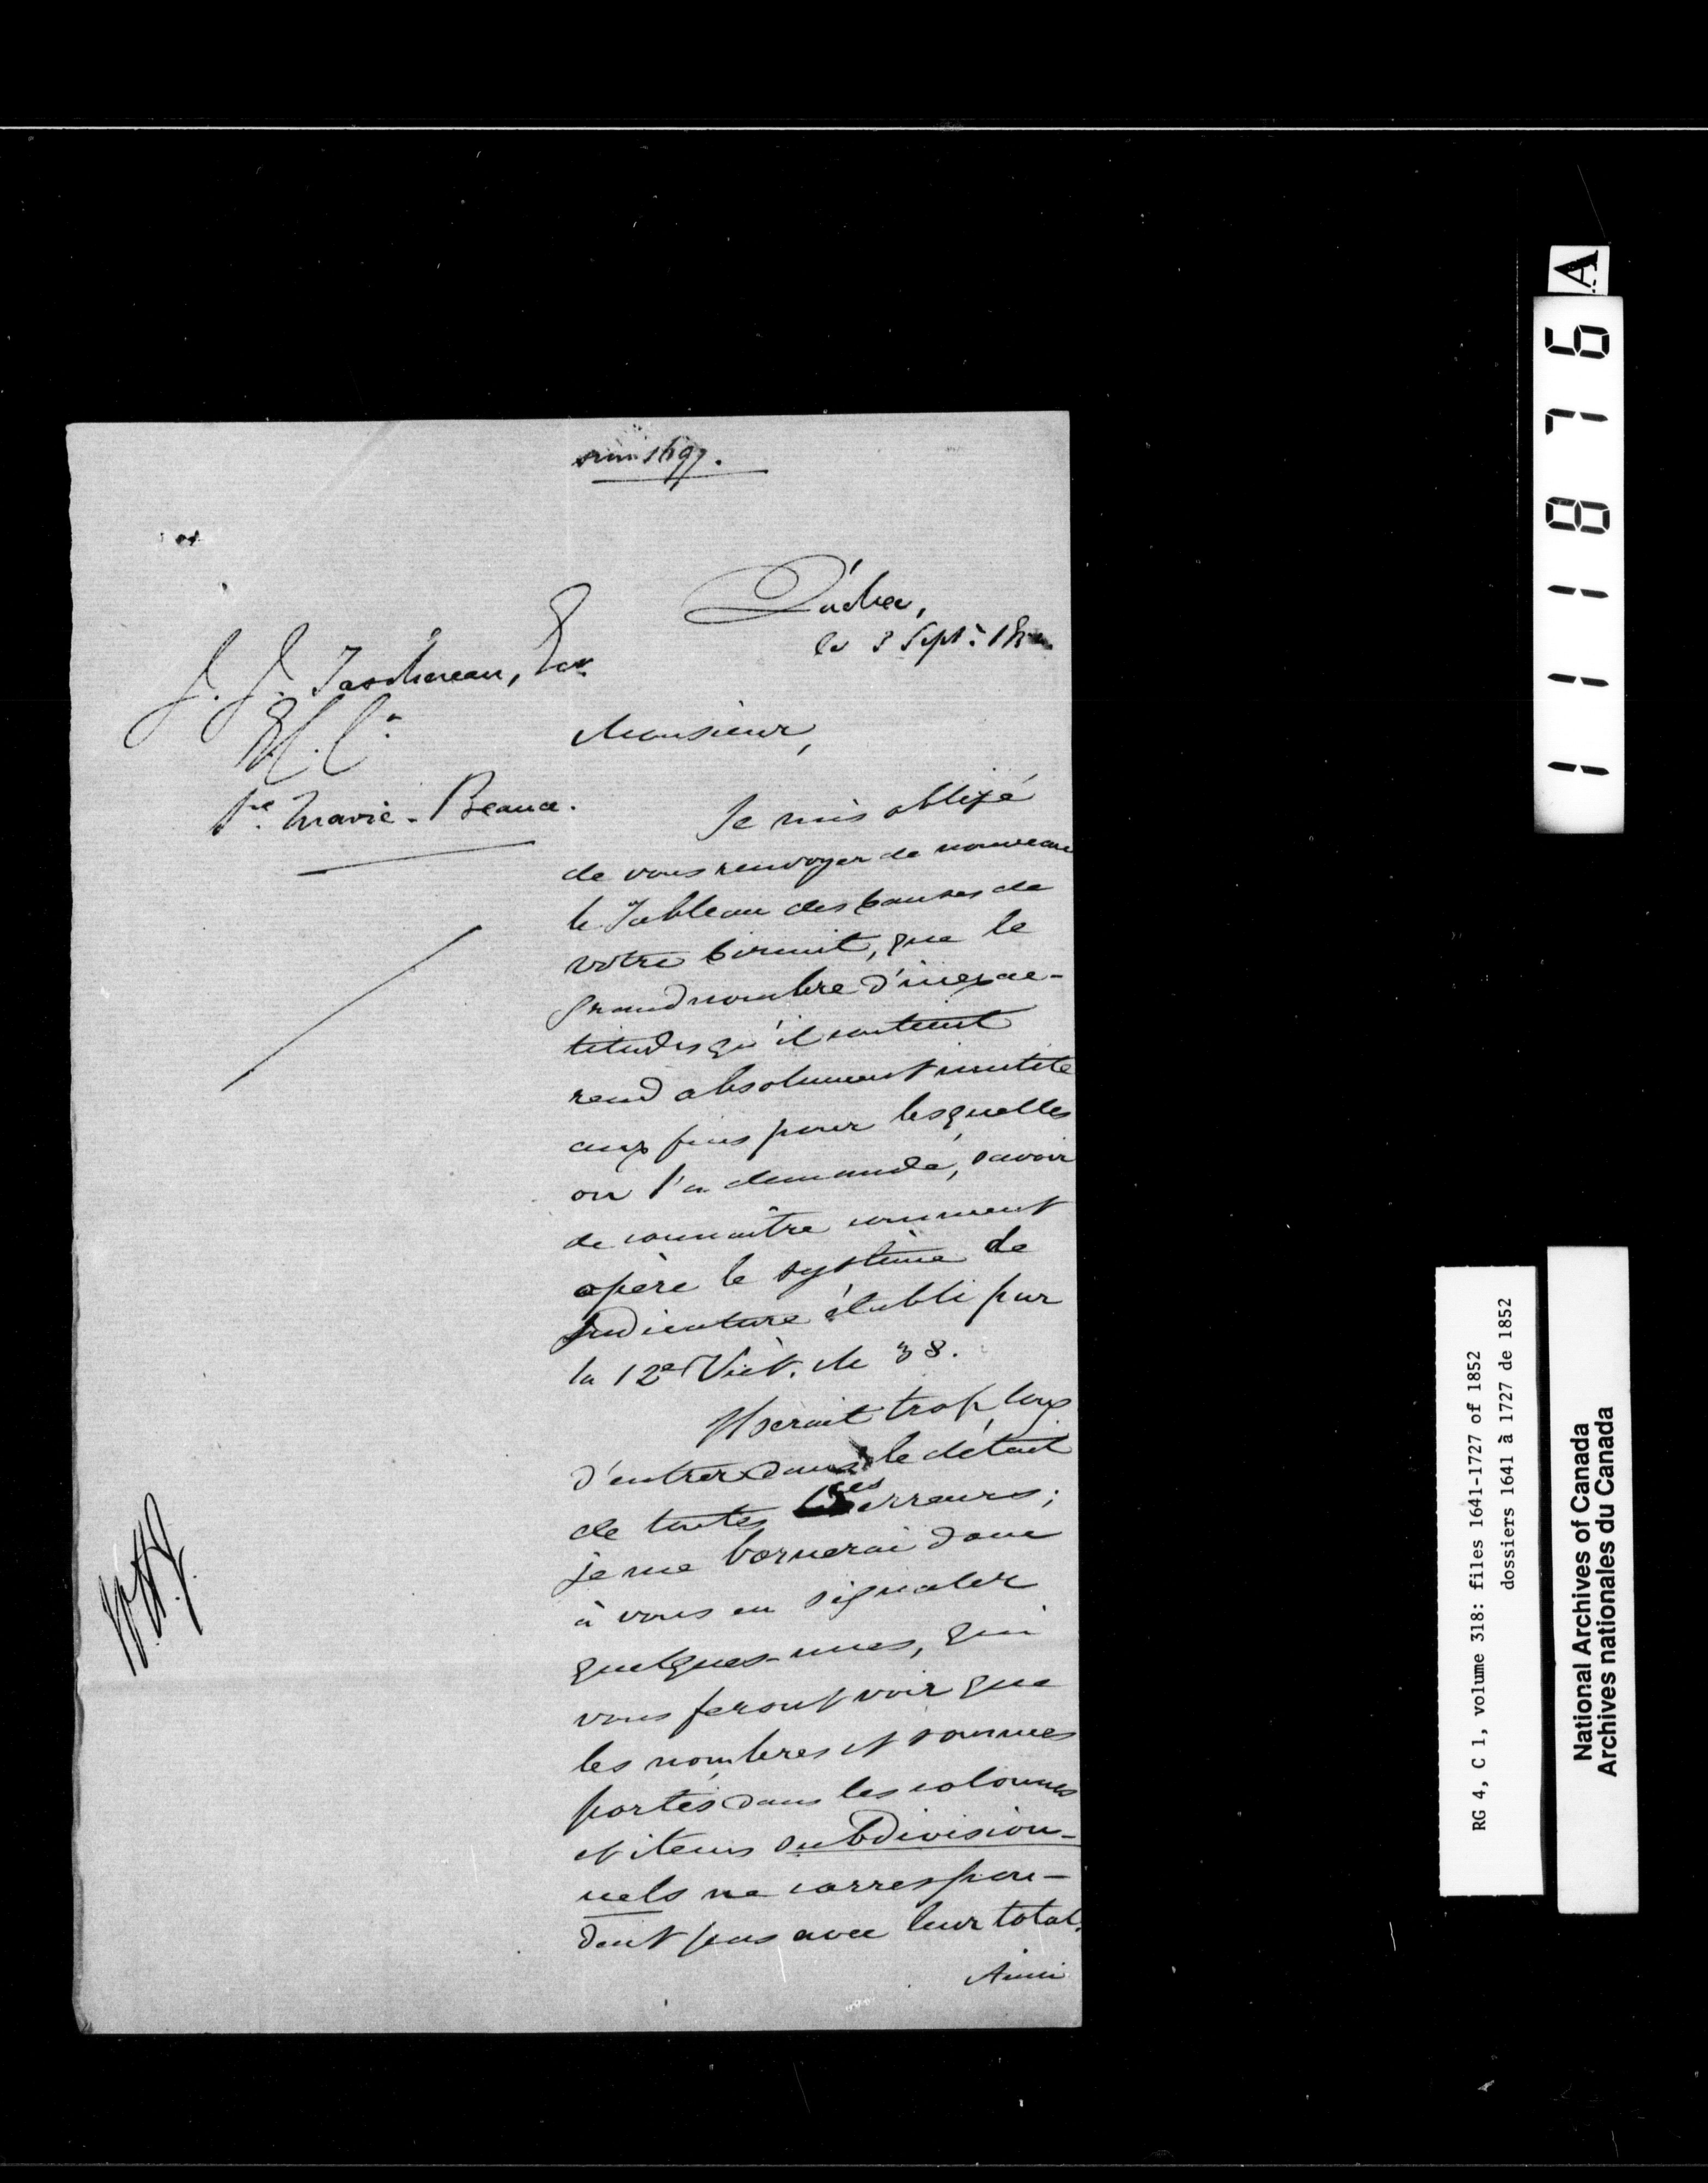 1697.
Québec,
le 3 Sept. 185
J. J. Taschereau, Ecr
&. C.
Ste. Marie - Beauce.
Monsieur,
Je suis obligé
de vous renvoyer de nouveau
le Tableau des Causes de
votre Circuit, que le
grand nombre d'inexac-
titudes qu'il contient
rend absolument inutile
aux fins pour lesquelles
on l'a demandé, savoir
de connaître comment
opère le système de
Judicature établi par
la 12e Vict. ch 38.
Il serait trop long
d'entrer dans le détail
de toutes ces erreurs;
je me bornerai donc
à vous en signaler
quelques-unes, qui
vous feront voir que
les nombres et sommes
portés dans les colonnes
et items subdivision-
nels ne correspon-
dent pas avec leur total.
Ainsi
A
111876
RG 4, C 1, volume 318: files 1641-1727 of 1852
dossiers 1641 à 1727 de 1852
National Archives of Canada
Archives nationales du Canada